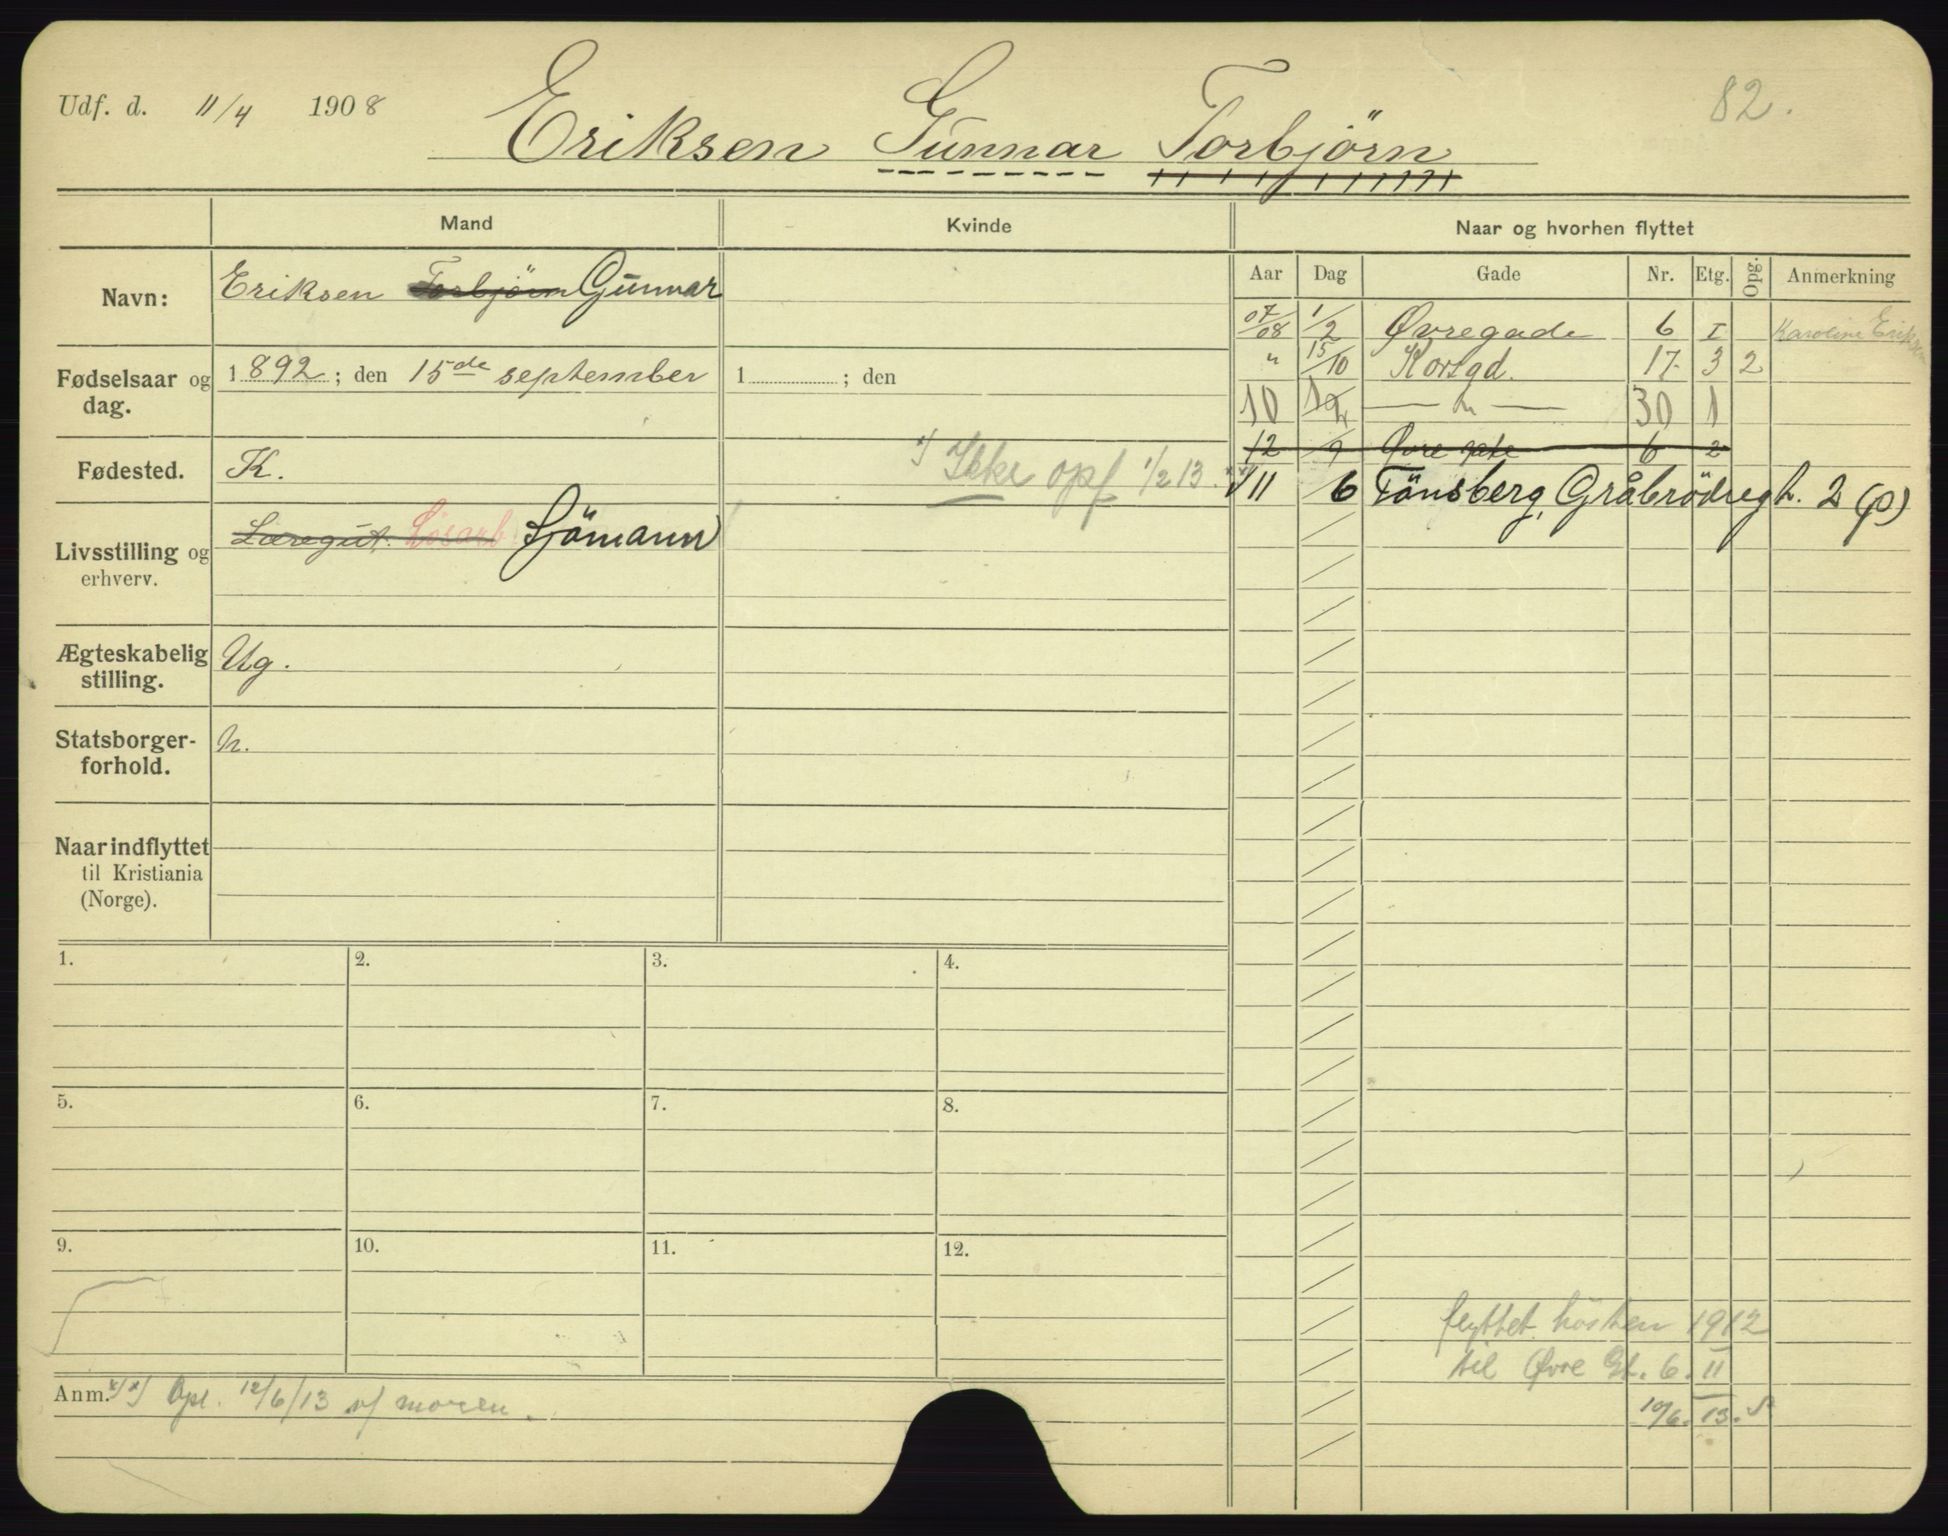 Udf. d. 11/4 1908
Eriksen Gunnar Torbjörn
82.
Mand
Kvinde
Naar og hvorhen flyttet
Aar Dag Gade Nr. Etg. Opg. Anmerkning
Navn: Eriksen Torbjörn Gunnar
07/08 1/2 Øvregade 6 I Karoline Eriksen
Fødselsaar og dag. 1892; den 15de september
1 ; den
" 15/10 Korsgd. 17. 3 2
10 — " — 30 1
12 /9 Øvre gate 6 2
Fødested. K.
x) Ikke opf 1/2 13.
11 /6 Tönsberg, Gråbrödregt. 2 (p)
Livsstilling og erhverv. Læregut. Løsarb Sjömann
Ægteskabelig stilling. Ug.
Statsborger-
forhold. n.
Naar indflyttet
til Kristiania
(Norge).
1. 2. 3. 4.
5. 6. 7. 8.
9. 10. 11. 12.
flyttet hösten 1912
til Øvre Gt. 6. II
10/6. 13.
Anm. x) x) Opl. 12/6/13 af moren.